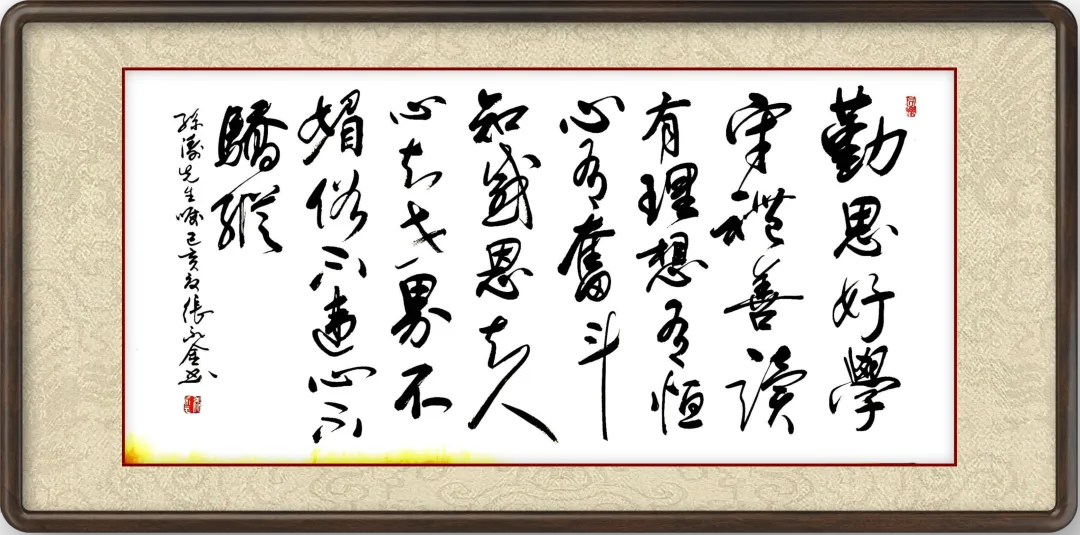 勤思好學
守禮善讀
有理想有恒
心有奮斗
知感恩知人
心知世界不
媚俗不違心不
驕縱
孫濤先生囑己亥張永金書